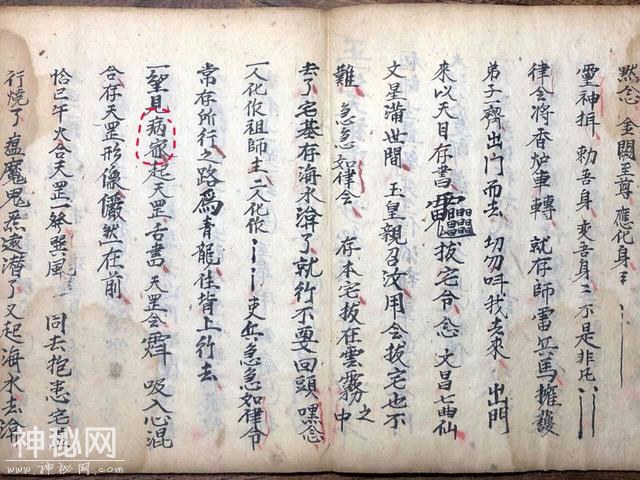 默念 金闕至尊 應化身
靈神揖 勅吾身 变吾身 不是非凡
律令将香炉車轉 就存師雷兵馬擁護
弟子一齊出門而去 切勿叫我去來 出門
來以天目存書 拔宅令 念 文昌七曲仙
文星蒲世間 玉皇親召汝 用会拔宅也不
難 急急如律令 存本宅拔在雲霧之中
去了宅基存海水滃了就行不要回頭 嘿念
一人化作祖師主 二人化作 吏兵急急如律令
常存所行之路為青龍 住背上行去
一望見病爺 起天罡 書 天罡会 吸入心混
合存天罡形像儼然在前
恰巳午火合天罡一發巽風 同去抱患宅
行燒了瘟魔鬼 遠潜了又起海水去滃
神秘网
www.shenmiwang.com